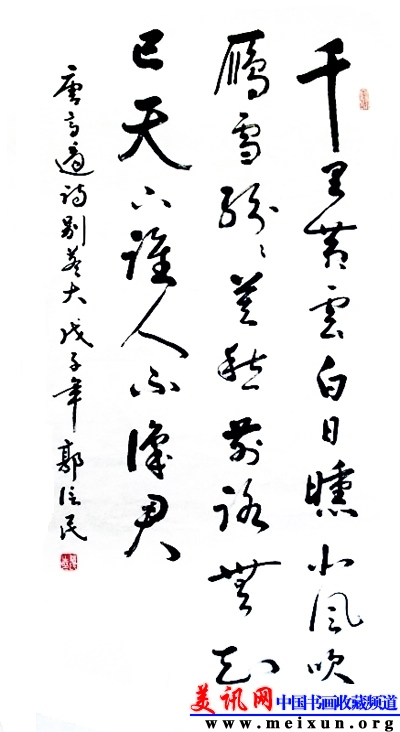 千里黄雲白日曛北风吹
雁雪紛紛莫愁前路無知
己天下誰人不識君
唐高適诗别董大 戊子年 郭住民
美讯网 中国书画收藏频道
www.meixun.org